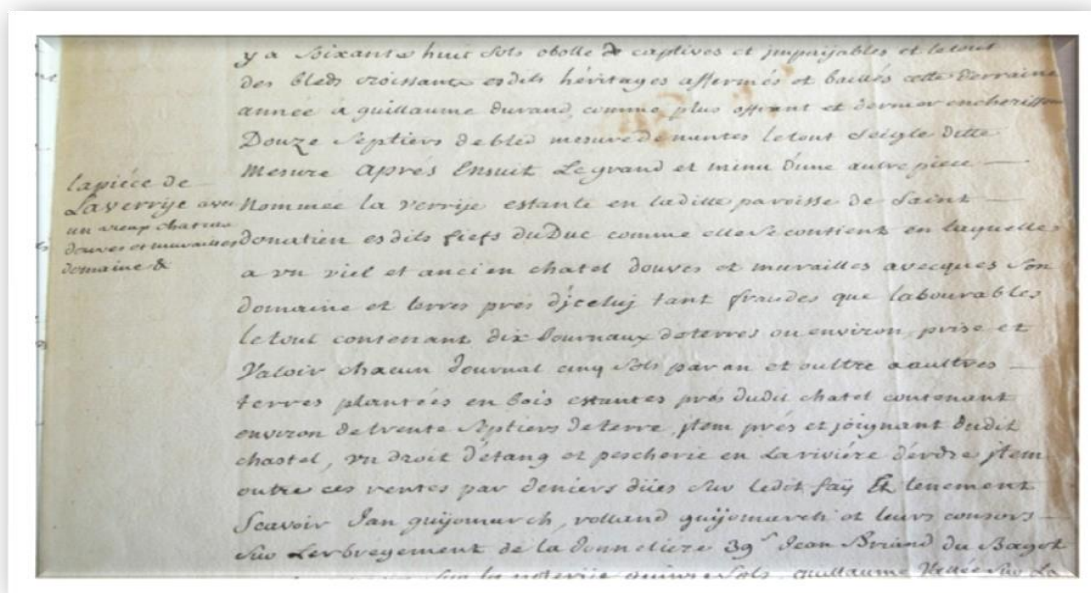 y a Soixante huit sols obolle de captives et impaijables et letout
des bleds croissants esdits héritages affermés et baillés cette derraine
année à guillaume durand, comme plus offrant et dernier encherisseur
Douze Septiers debled mesure denantes letout Seigle ditte
Mesure Aprés Ensuit Legrand et menu d'une autre piece
Nommée la verrije estante en laditte paroisse de Saint
donatien esdits fiefs duDuc comme elle Se contient en laquelle
a vn viel et ancien chatel douves et murailles avecques Son
domaine et terres prés djceluj tant que labourables
letout contenant dix Journaux deterres ou environ, prisé et
Valoir chacun Journal cinq Sols par an et oultre aaultres
terres plantées en bois estantes prés dudit chatel contenant
environ de trente Septiers de terre, jtem prés et joignant dudit
chastel, vn droit d'étang et pescherie en La riviére d'erdre jtem
outre ces rentes par deniers düës Sur ledit faÿ Et tenement
Scavoir Jan guijomarch, rolland guijomarch et leurs consors
Sur Lerbregement de la Jonneliére 39s Jean Briand du Bagot
Sur la quinze Sols, guillaume Sur La
lapiéce de
Laverrije avec
un vieux chateau
douves et murailles
domaine &